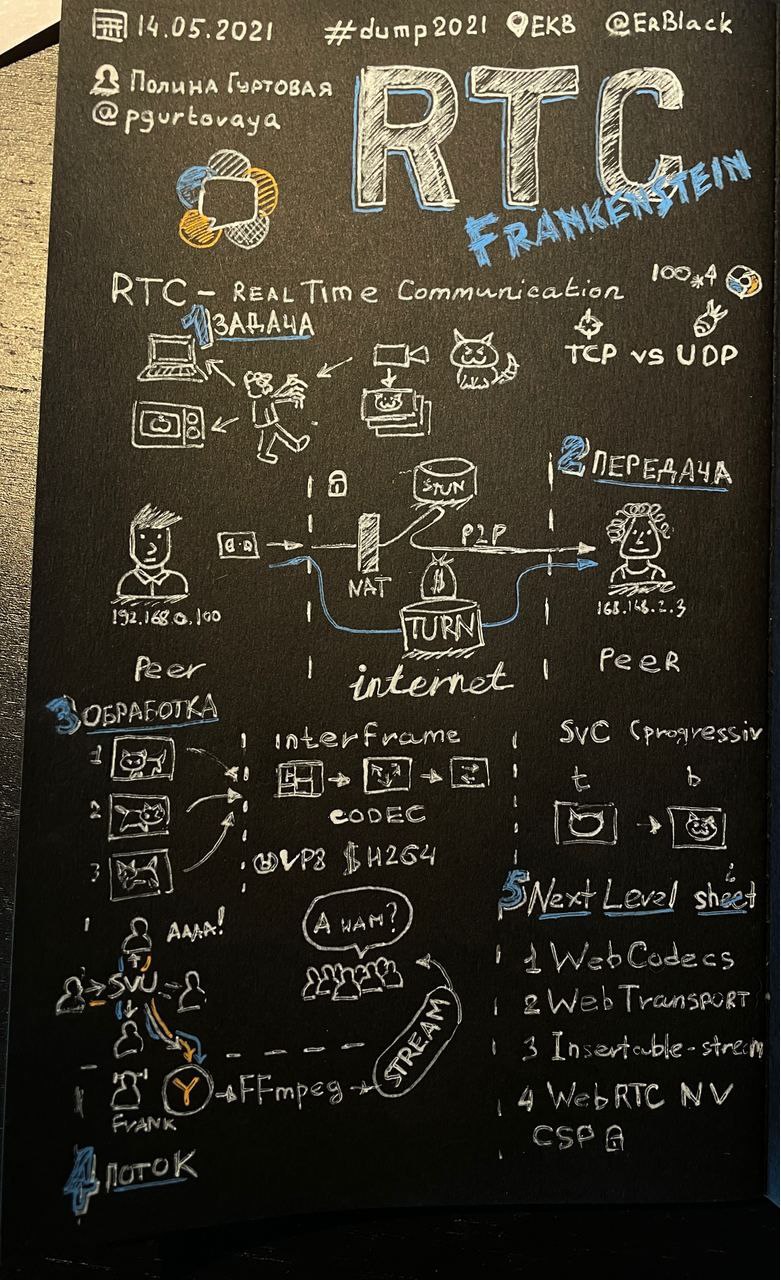 14.05.2021 #dump2021 EKB @ErBlack
Полина Гуртовая
@pgurtovaya
RTC
FRANKENSTEIN
RTC - Real Time Communication
100*4
1 ЗАДАЧА
TCP vs UDP
2 ПЕРЕДАЧА
STUN
P2P
NAT
$
TURN
192.168.0.100
168.148.2.3
Peer
internet
PeeR
3 ОБРАБОТКА
InterFrame
SVC (progressiv
1
t b
CODEC
2
VP8 $ H264
3
5 Next Level sheet
i
А НАМ?
АААА!
SVU
1 WebCodecs
2 WebTransport
3 Insertable-stream
4 WebRTC NV
CSP
STREAM
Y
FFmpeg
FVANK
4 ПОТОК